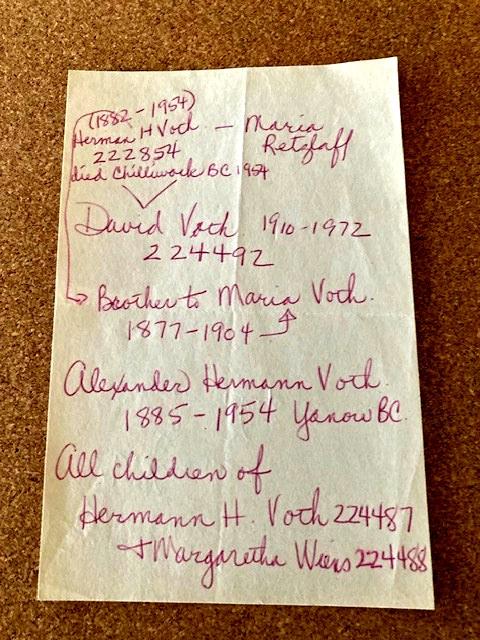 (1882 - 1954)
Herman H Voth — Maria
Retzlaff
222854
died Chilliwack BC 1954
David Voth 1910-1972
224492
Brother to Maria Voth.
1877-1904
Alexander Hermann Voth
1885-1954 Yarrow BC.
All children of
Hermann H. Voth 224487
+ Margaretha Wiens 224488